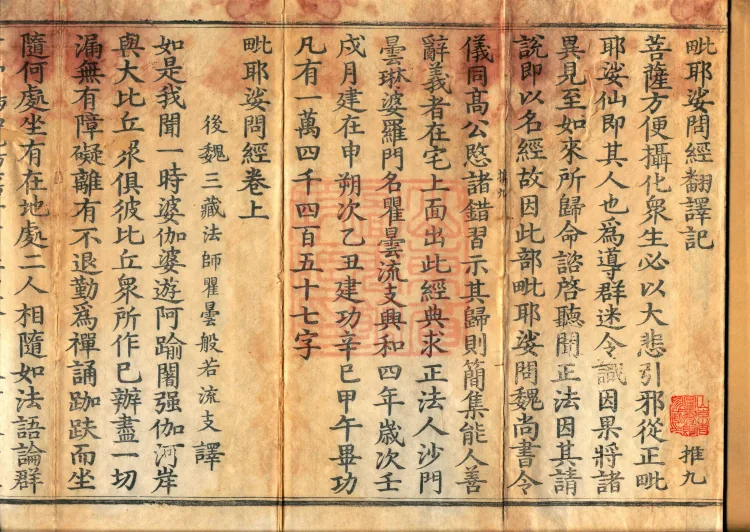 毗耶娑問經翻譯記
菩薩方便攝化衆生必以大悲引邪從正毗
耶娑仙即其人也爲導群迷令識因果將諸
異見至如來所歸命諮啓聽聞正法因其請
說即以名經故因此部毗耶娑問魏尚書令
儀同高公愍諸錯習示其歸則簡集能人善
辭義者在宅上面出此經典求正法人沙門
曇琳婆羅門名瞿曇流支興和四年歲次壬
戌月建在申朔次乙丑建功辛巳甲午畢功
凡有一萬四千四百五十七字
毗耶娑問經卷上
後魏三藏法師瞿曇般若流支 譯
如是我聞一時婆伽婆遊阿踰闍强伽河岸
與大比丘衆俱彼比丘衆所作已辦盡一切
漏無有障礙離有不退勤爲禪誦跏趺而坐
隨何處坐有在地處二人相隨如法語論群
推九